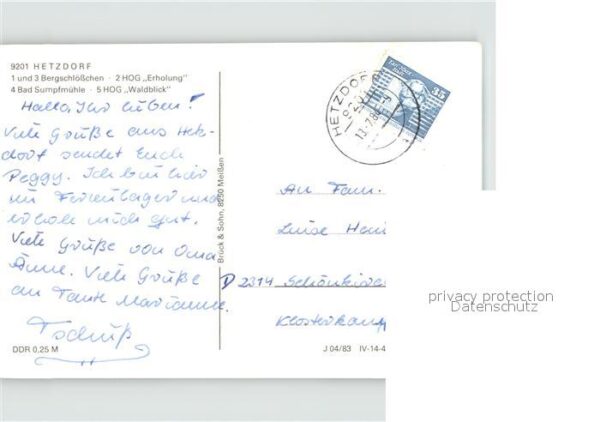 9201 HETZDORF
1 und 3 Bergschlößchen · 2 HOG „Erholung"
4 Bad Sumpfmühle · 5 HOG „Waldblick"
Hallo, Ihr Lieben!
Viele Grüße aus Hetz-
dorf sendet Euch
Peggy. Ich bin hier
im Ferienlager und
erhole mich gut.
Viele Grüße von Oma
Änne. Viele Grüße
an Tante Marianne.
Tschüß
DDR 0,25 M
Brück & Sohn, 8250 Meißen
HETZDORF
35
An Fam.
Luise
D 2314 Schönkirc
Klosterkamp
J 04/83 IV-14-4
privacy protection
Datenschutz